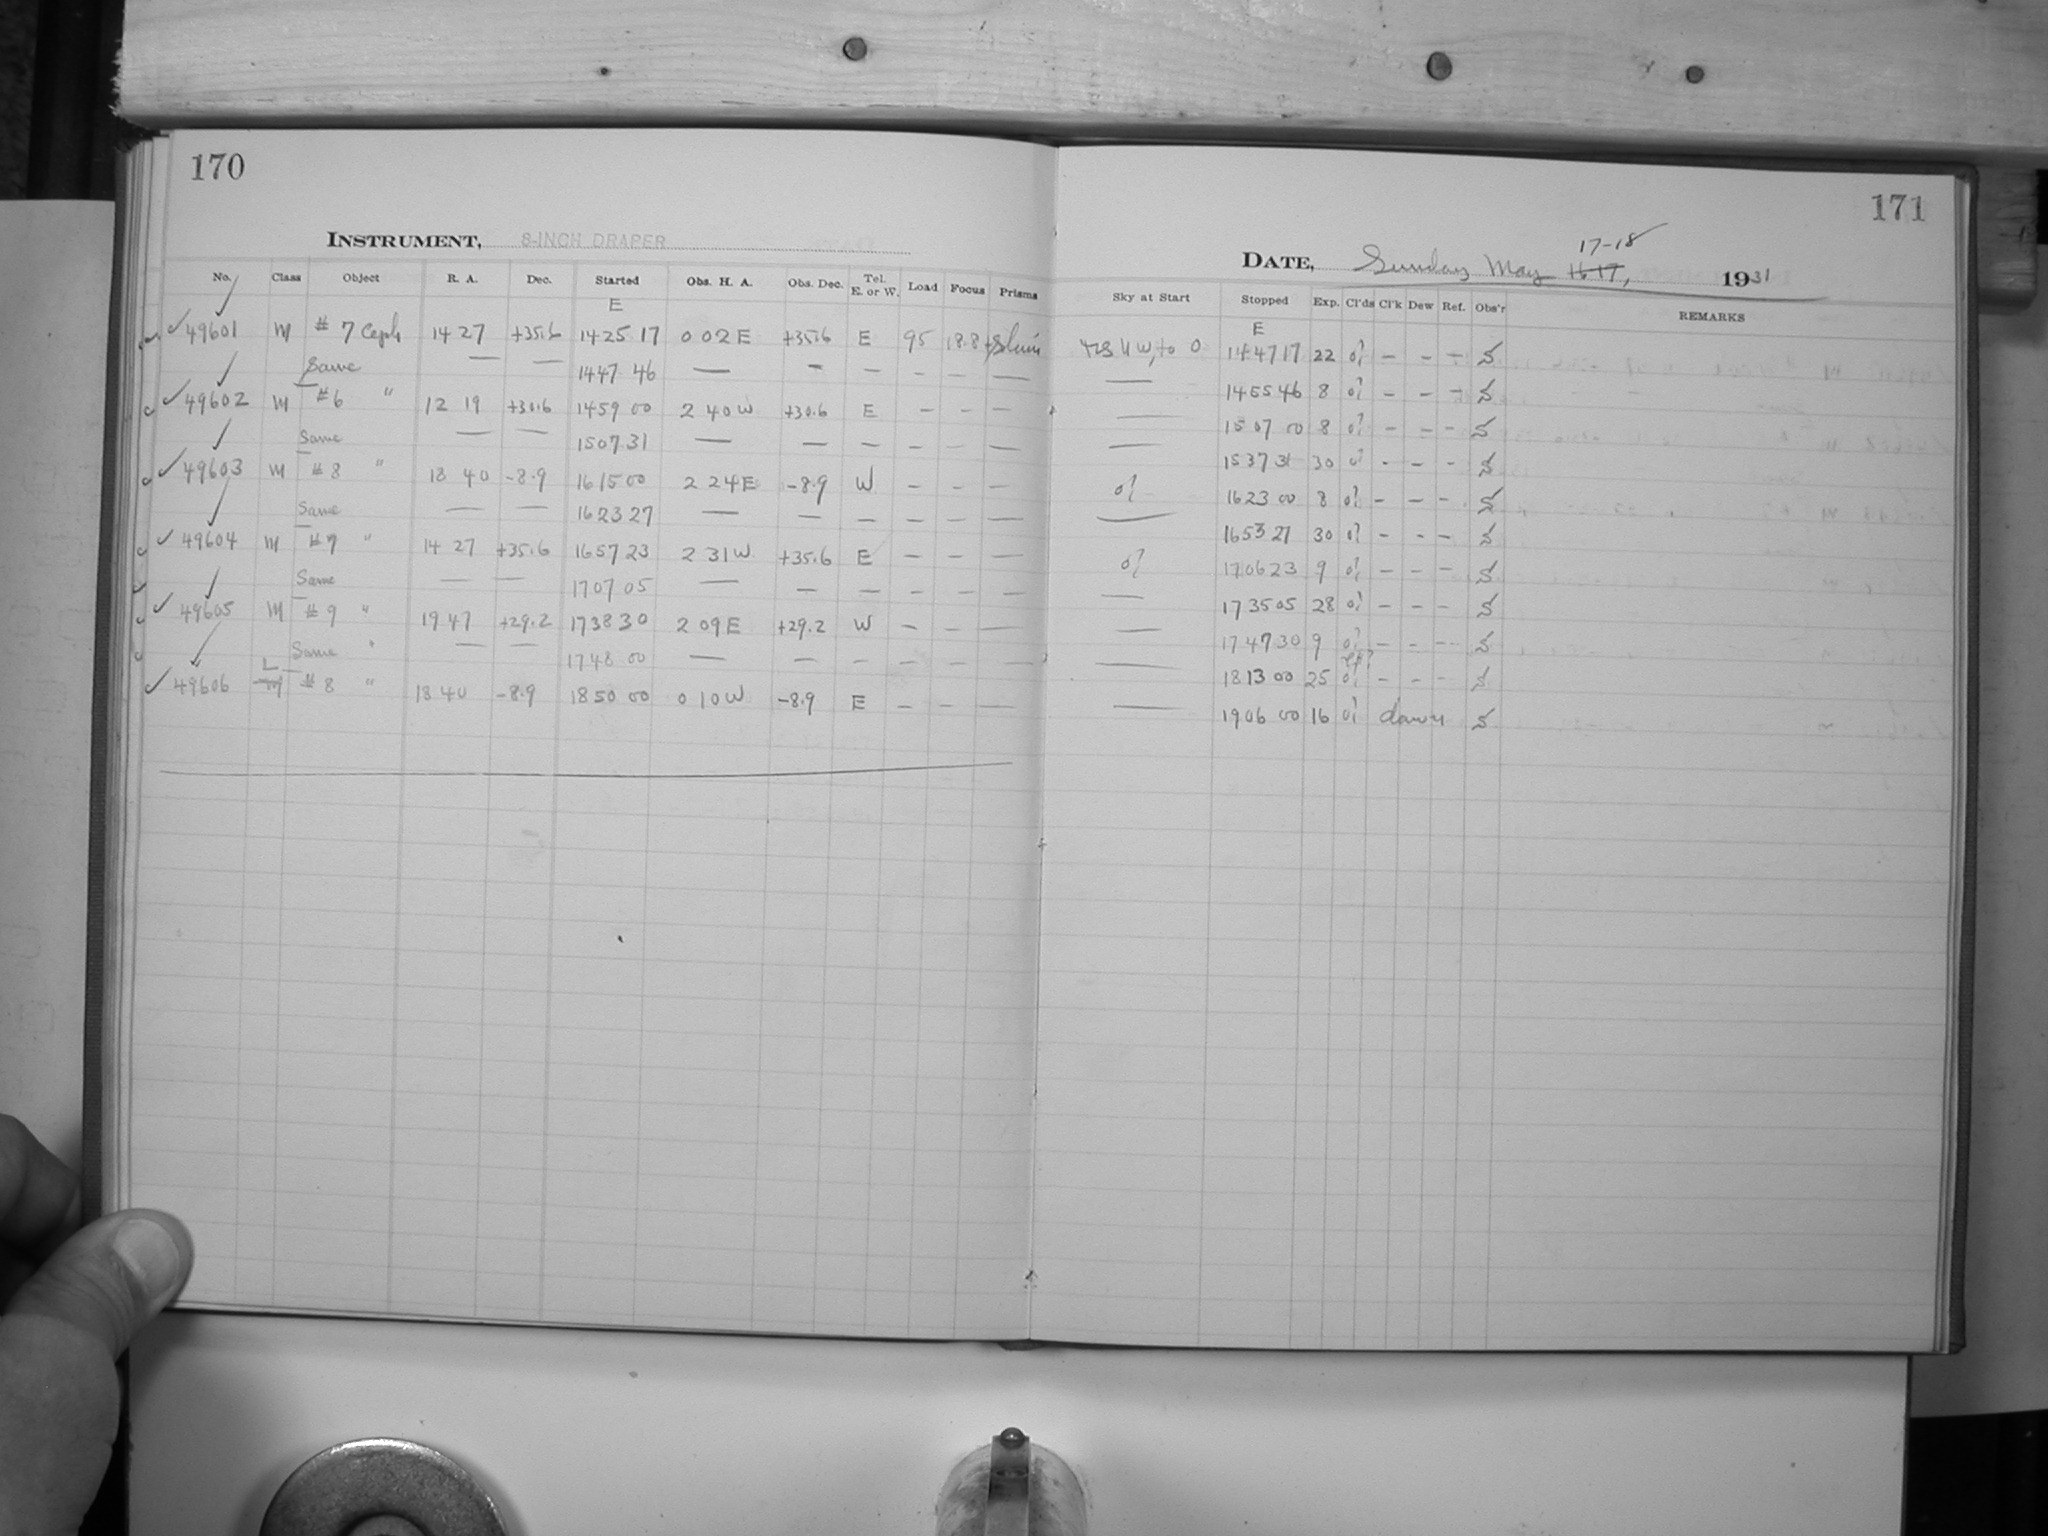 170
INSTRUMENT, 8-INCH DRAPER
No. Class Object R. A. Dec. Started Obs. H. A. Obs. Dec. Tel. E. or W. Load Focus Prisms
E
49601 M # 7 Ceph 14 27 +35.6 14 25 17 0 02 E +35.6 E 95 18.8
Same — — 14 47 46 — — — — — —
49602 M #6 " 12 19 +30.6 14 59 00 2 40 W +30.6 E — — —
Same — — 15 07 31 — — — — — —
49603 M #8 " 18 40 -8.9 16 15 00 2 24 E -8.9 W — — —
Same — — 16 23 27 — — — — — —
49604 M #7 " 14 27 +35.6 16 57 23 2 31 W +35.6 E — — —
Same — — 17 07 05 — — — — — —
49605 M #9 " 19 47 +29.2 17 38 30 2 09 E +29.2 W — — —
Same " — — 17 48 00 — — — — — —
49606 L #8 " 18 40 -8.9 18 50 00 0 10 W -8.9 E — — —
171
17-18
DATE, Sunday May 16-17, 1931
Sky at Start Stopped Exp. Cl'ds Cl'k Dew Ref. Obs'r REMARKS
E
14 47 17 22 0? — — — S
— 14 55 46 8 0? — — — S
— 15 07 00 8 0? — — — S
— 15 37 31 30 0? — — — S
0? 16 23 00 8 0? — — — S
— 16 53 27 30 0? — — — S
0? 17 06 23 9 0? — — — S
— 17 35 05 28 0? — — — S
— 17 47 30 9 0? — — — S
— 18 13 00 25 0? — — — S
— 19 06 00 16 0? dawn S